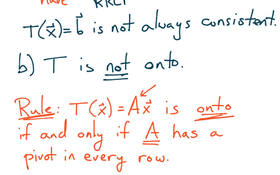 have RREF
T(x⃗)=b⃗ is not always consistent.
b) T is not onto.
Rule: T(x⃗) = Ax⃗ is onto
if and only if A has a
pivot in every row.